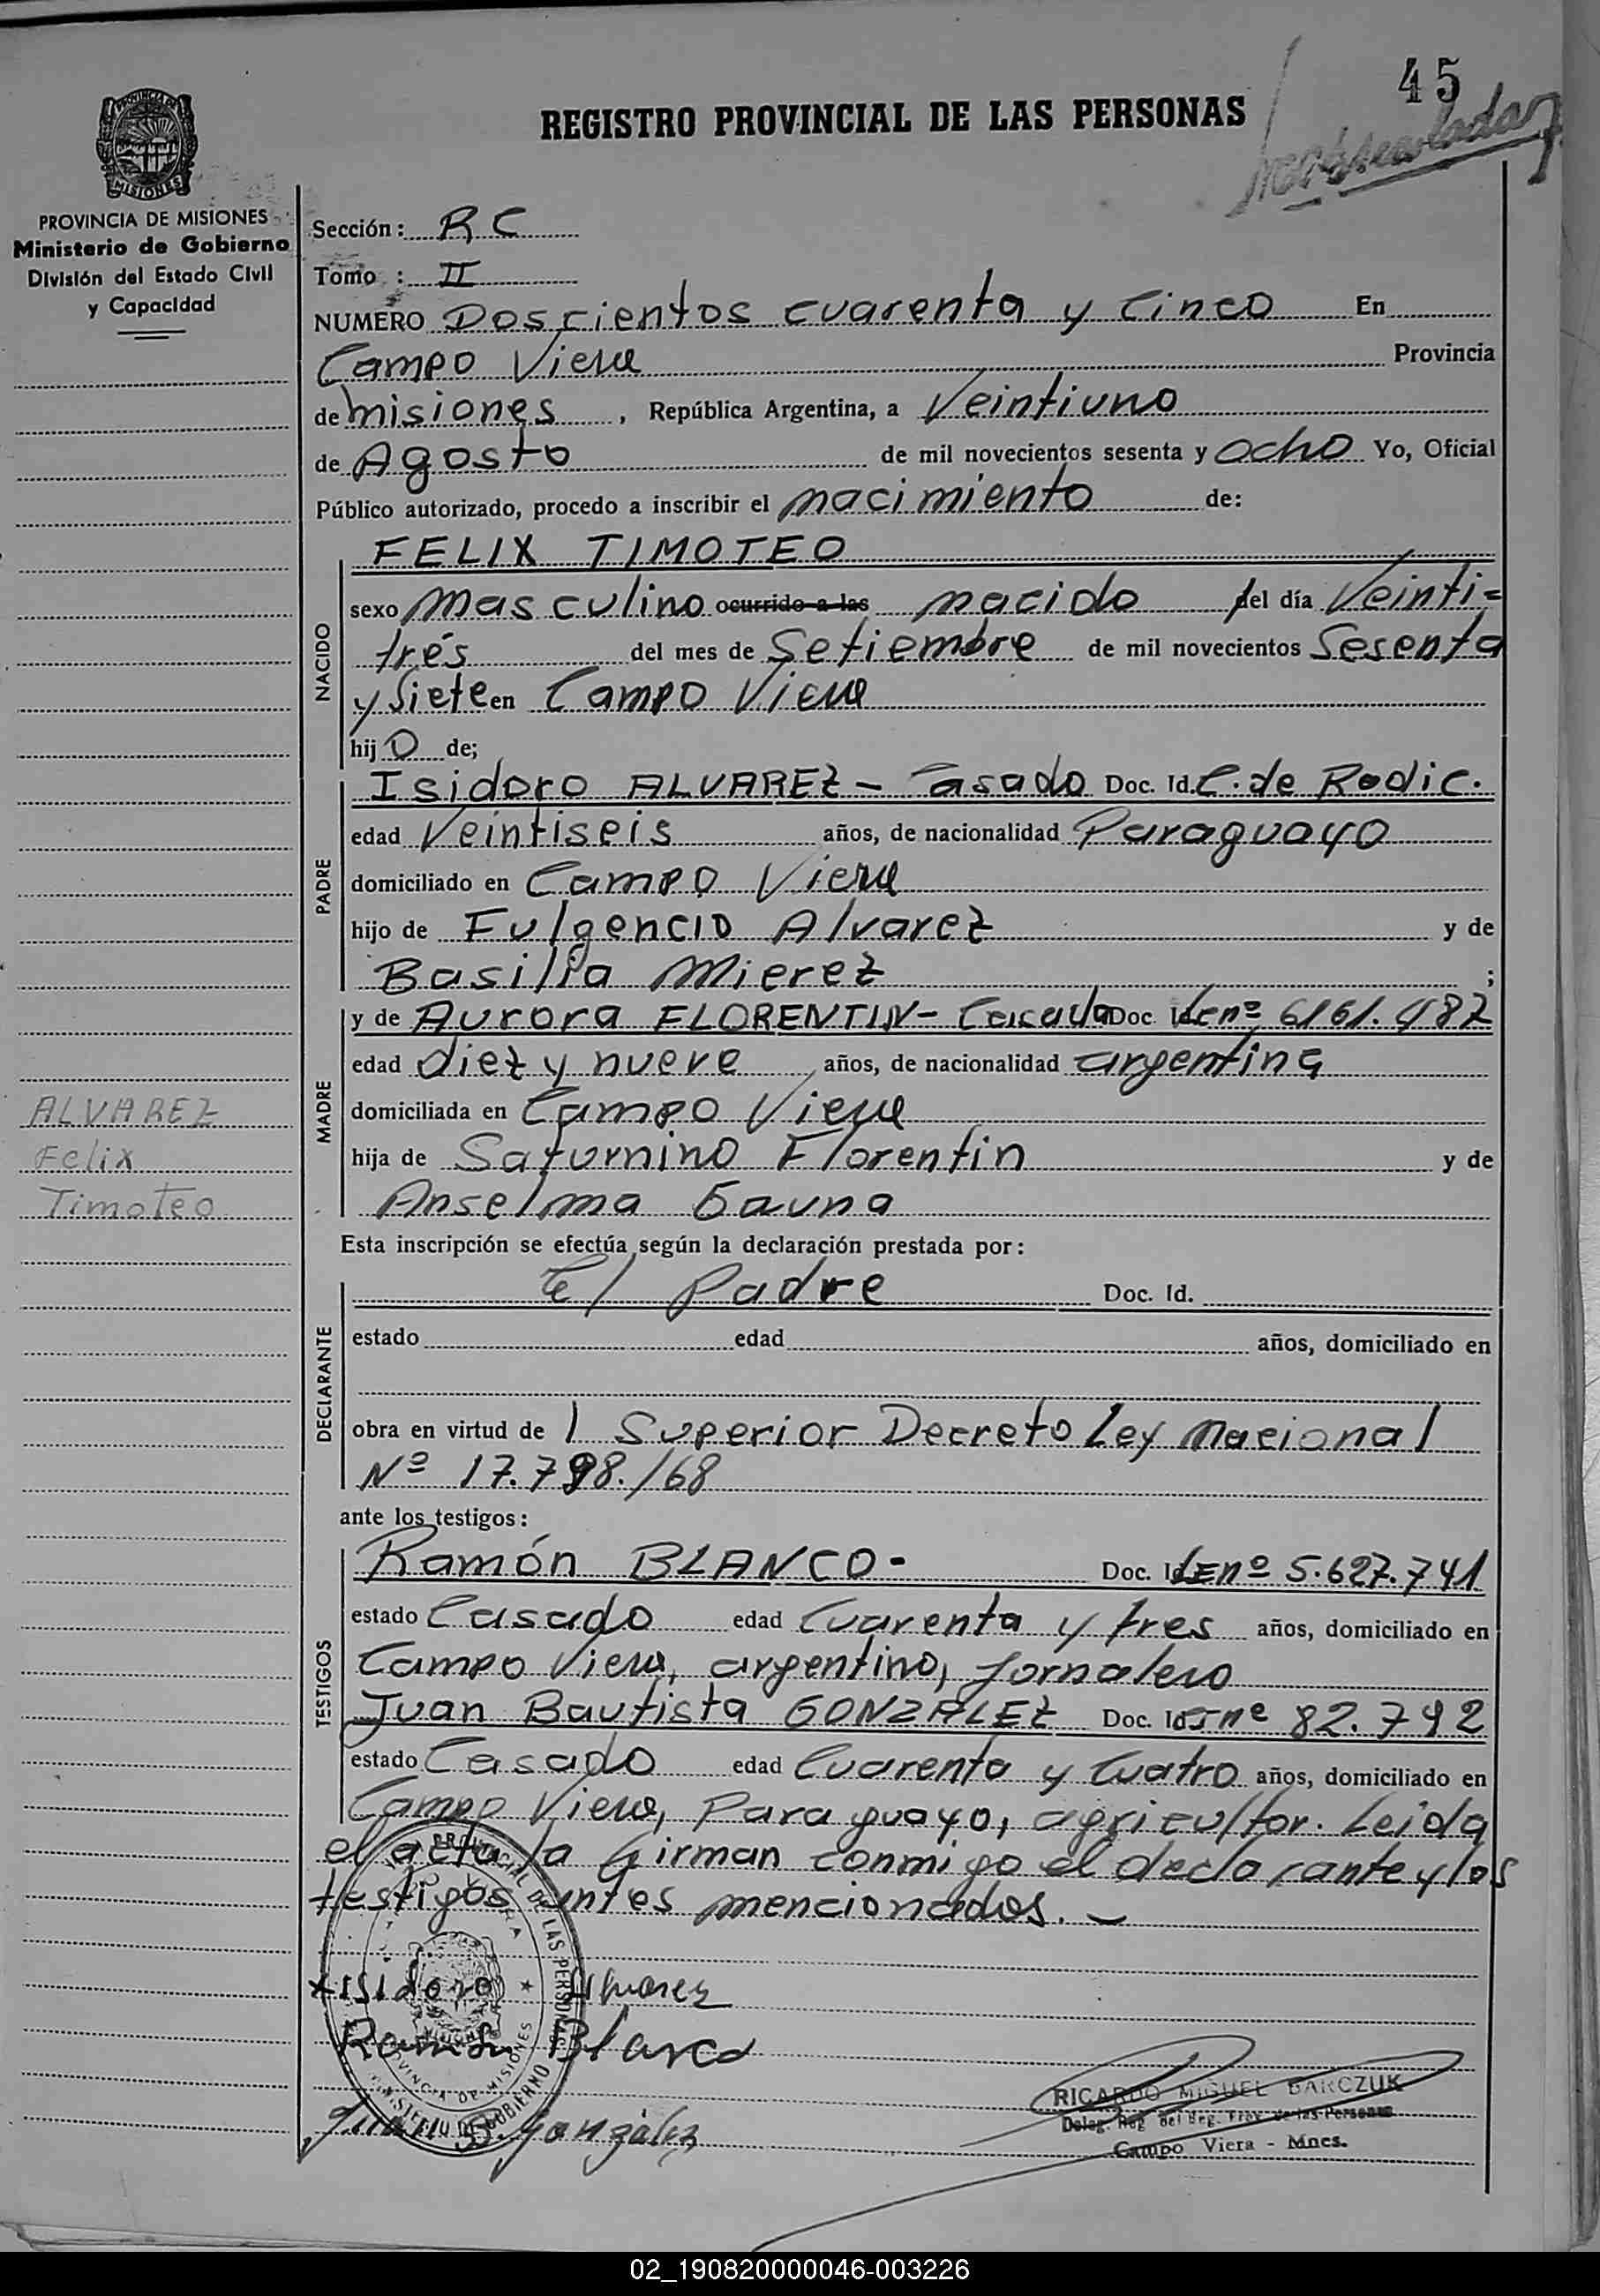 45
REGISTRO PROVINCIAL DE LAS PERSONAS
PROVINCIA DE MISIONES
Ministerio de Gobierno
División del Estado Civil
y Capacidad
Sección: RC
Tomo : II
NUMERO Doscientos cuarenta y Cinco En
Campo Viera Provincia
de misiones, República Argentina, a Veintiuno
de Agosto de mil novecientos sesenta y ocho Yo, Oficial
Público autorizado, procedo a inscribir el nacimiento de:
NACIDO
FELIX TIMOTEO
sexo masculino ocurrido a las nacido del día Veinti-
trés del mes de Setiembre de mil novecientos Sesenta
y Siete en Campo Viera
hijo de;
PADRE
Isidoro ALVAREZ - Casado Doc. Id. C. de Rodic.
edad Veintiseis años, de nacionalidad Paraguayo
domiciliado en Campo Viera
hijo de Fulgencio Alvarez y de
Basilia Mierez ;
MADRE
y de Aurora FLORENTIN - Casada Doc. 6161.482
edad diez y nueve años, de nacionalidad argentina
domiciliada en Campo Viera
hija de Saturnino Florentin y de
Anselma Gauna
ALVAREZ
Felix
Timoteo
Esta inscripción se efectúa según la declaración prestada por:
DECLARANTE
El Padre Doc. Id.
estado edad años, domiciliado en
obra en virtud de l Superior Decreto Ley Nacional
Nº 17.798./68
ante los testigos:
TESTIGOS
Ramón BLANCO - Doc. Id LE nº 5.627.741
estado Casado edad Cuarenta y tres años, domiciliado en
Campo Viera, argentino, Jornalero
Juan Bautista GONZALEZ Doc. Id nº 82.792
estado Casado edad Cuarenta y Cuatro años, domiciliado en
Campo Viera, Paraguayo, agricultor. Leida
el acta la firman conmigo el declarante y los
testigos antes mencionados. -
Isidoro Alvarez
Ramón Blanco
Juan B. Gonzalez
REGISTRO PROVINCIAL DE LAS PERSONAS
PROVINCIA DE MISIONES
MINISTERIO DE GOBIERNO
RICARDO MIGUEL BARCZUK
Deleg. Reg. del Reg. Prov. de las Personas
Campo Viera - Mnes.
02_190820000046-003226